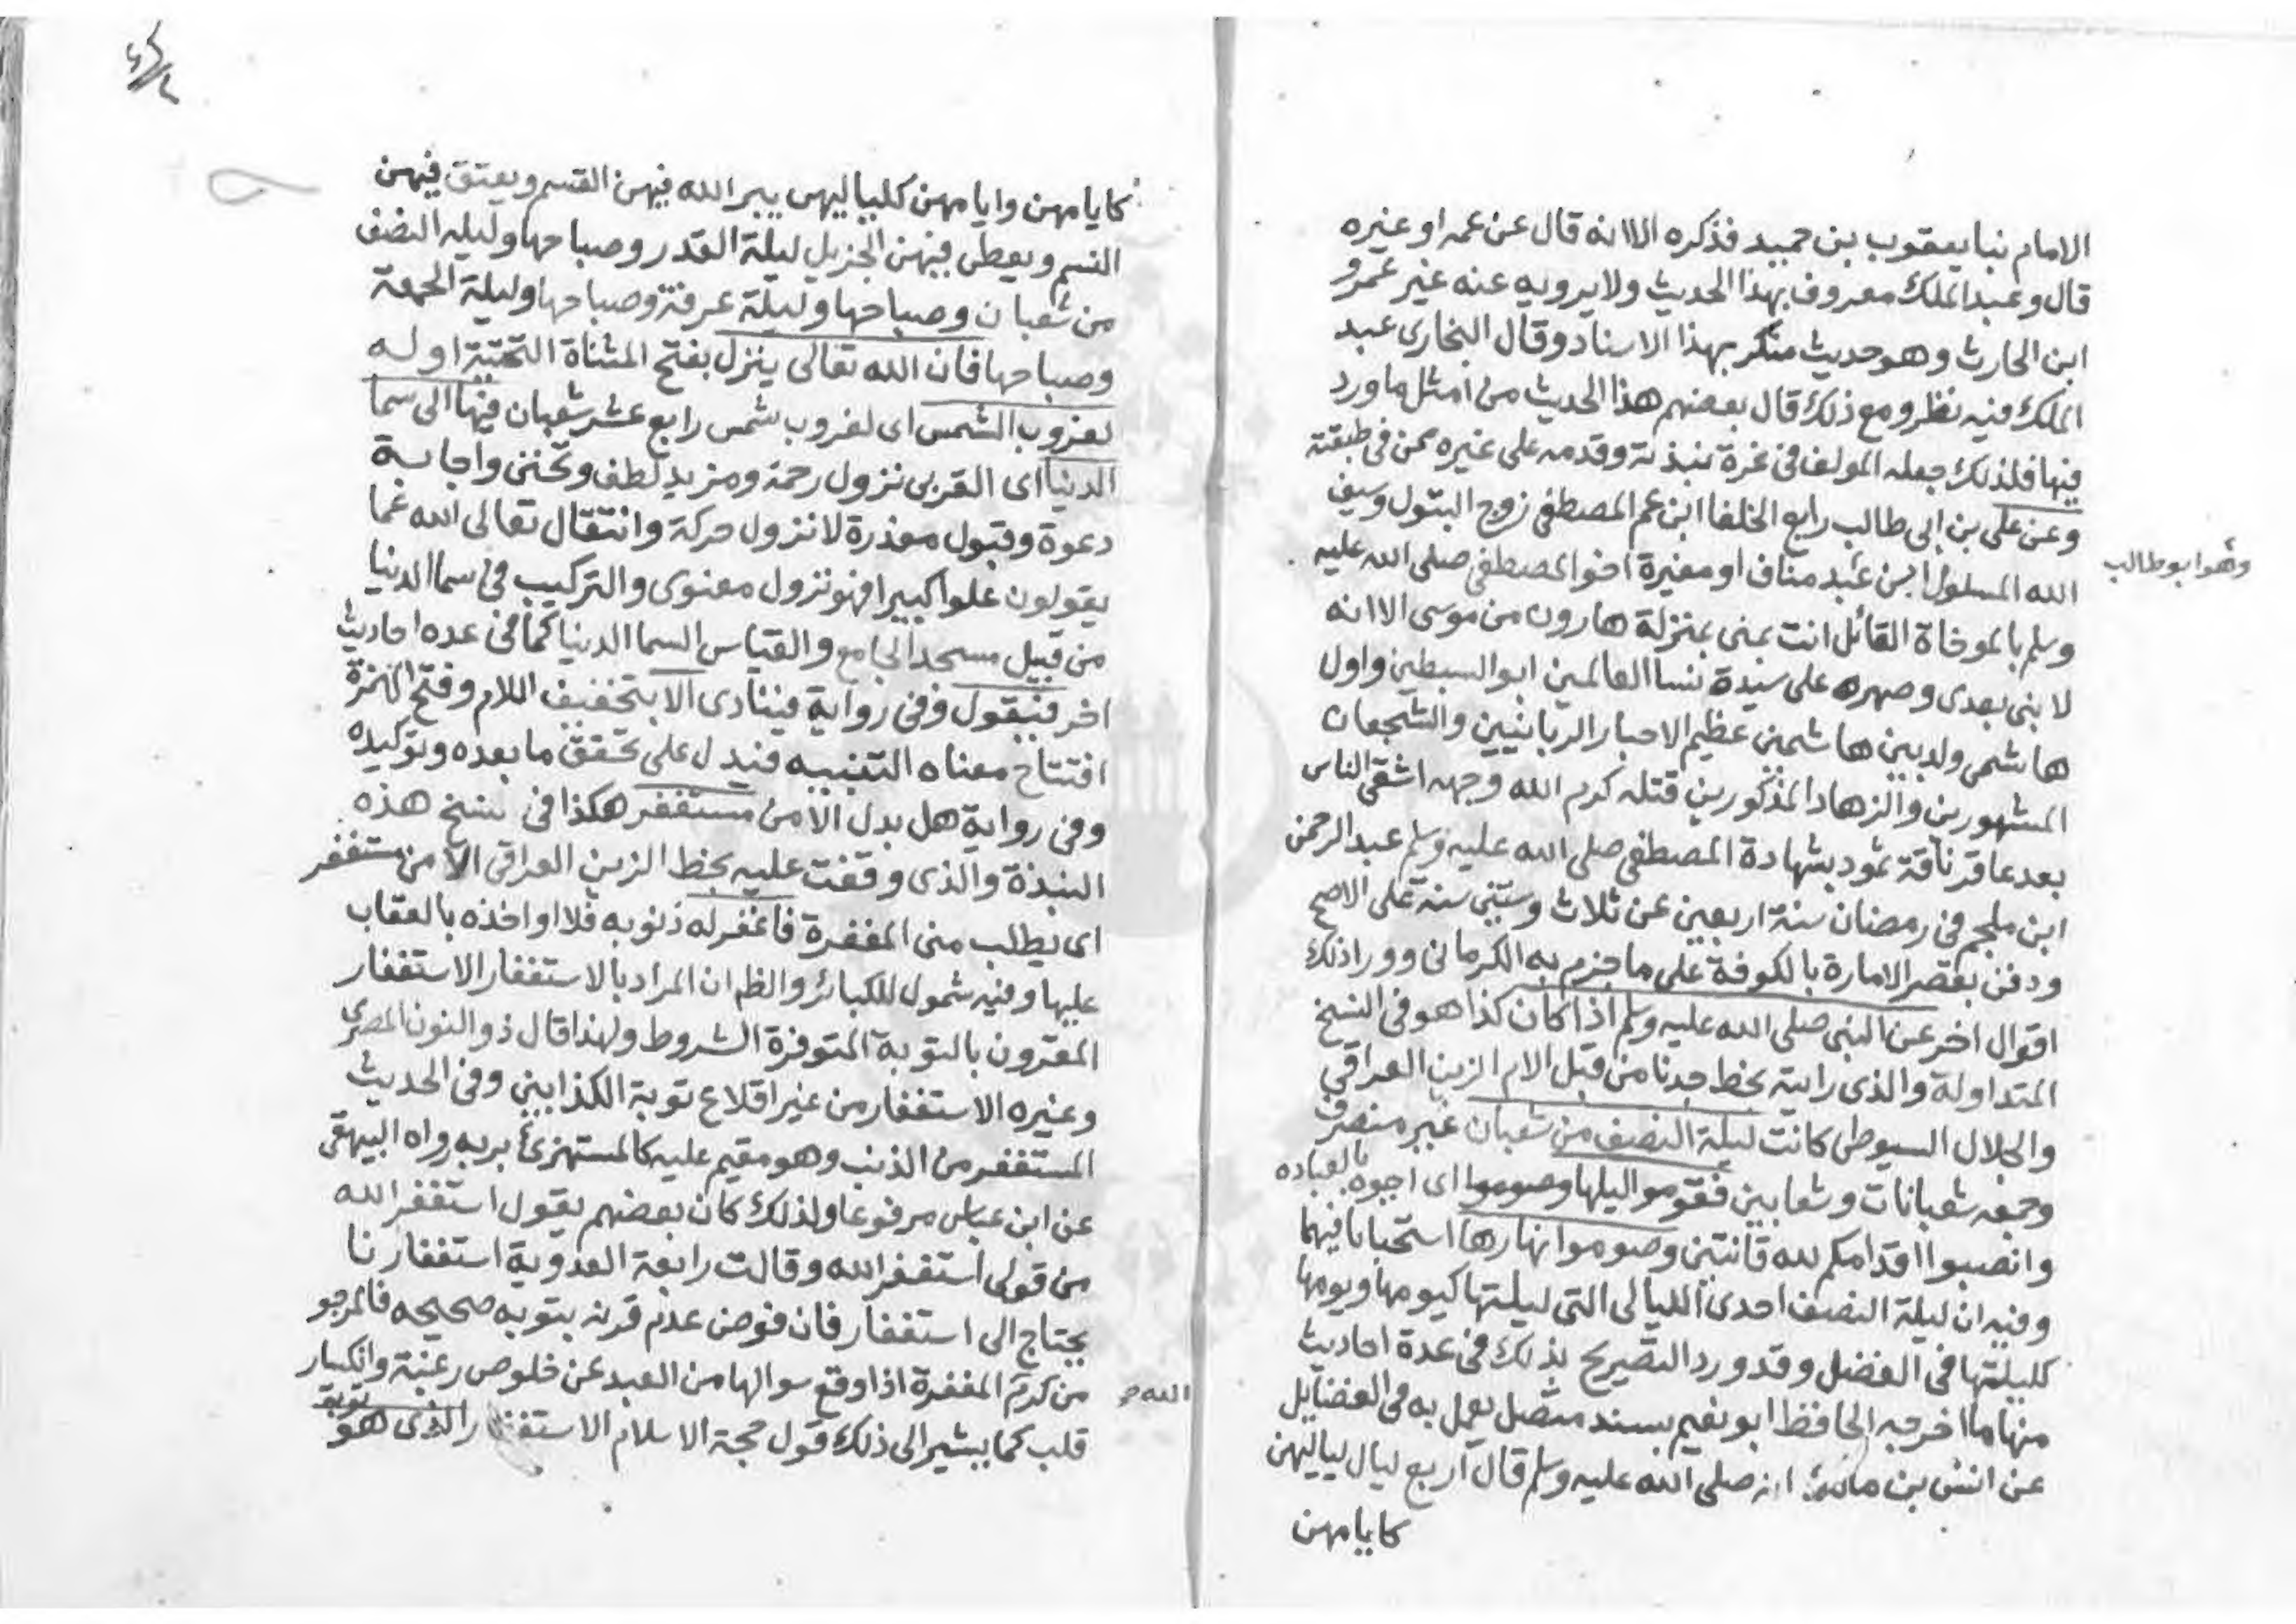 الامام نبا يعقوب بن حميد فذكره الا انه قال عن عمه او غيره
قال وعبد الملك معروف بهذا الحديث ولا يرويه عنه غير عمرو
ابن الحارث وهو حديث منكر بهذا الاسناد وقال البخارى عبد
الملك فيه نظر ومع ذلك قال بعضهم هذا الحديث من امثل ما ورد
فيها فلذلك جعله المولف فى غرة نبذته وقدمه على غيره ممن فى طبقته
وعن على بن ابى طالب رابع الخلفا ابن عم المصطفى زوج البتول وسيف
الله المسلول ابن عبد مناف او مغيرة اخو المصطفى صلى الله عليه
وهو ابو طالب
وسلم بالموخاة القائل انت منى بمنزلة هارون من موسى الا انه
لا بنى بعدى وصهره على سيدة نسا العالمين ابو السبطين واول
هاشمى ولد بين هاشمين عظيم الاحبار الربانيين والشجعان
المشهورين والزهاد المذكورين قتله كرم الله وجهه اشقى الناس
بعد عاقر ناقة ثمود بشهادة المصطفى صلى الله عليه وسلم عبد الرحمن
ابن ملجم فى رمضان سنة اربعين عن ثلاث وستين سنة على الاصح
ودفن بقصر الامارة بالكوفة على ما جزم به الكرمانى وورا ذلك
اقوال اخر عن النبى صلى الله عليه وسلم اذا كان كذا هو فى النسخ
المتداولة والذى رايته بخط جدنا من قبل الام الزين العراقى
والجلال السيوطى كانت ليلة النصف من شعبان غير منصرف
وجمعه شعبانات وشعابين فقوموا ليلها وصوموا اى احيوه بالعباده
وانصبوا اقدامكم لله قانتين وصوموا نهارها استحبابا فيهما
وفيه ان ليلة النصف احدى الليالى التى ليلتها كيومها ويومها
كليلتها فى الفضل وقد ورد التصريح بذلك فى عدة احاديث
منها ما اخرجه الحافظ ابو نعيم بسند متصل يعمل به فى الفضايل
عن انس بن مالك انه صلى الله عليه وسلم قال اربع ليال لياليهن
كايامهن
كايامهن وايامهن كلياليهن يبر الله فيهن القسم ويعتق فيهن
النسم ويعطى فيهن الجزيل ليلة القدر وصباحها وليله النصف
من شعبان وصباحها وليلة عرفة وصباحها وليلة الجمعة
وصباحها فان الله تعالى ينزل بفتح المثناة التحتية اوله
لغروب الشمس اى لغروب شمس رابع عشر شعبان فيها الى سما
الدنيا اى القربى نزول رحمة ومزيد لطف وتحنن واجابة
دعوة وقبول معذرة لا نزول حركة وانتقال تعالى الله عما
يقولون علوا كبيرا فهو نزول معنوى والتركيب فى سما الدنيا
من قبيل مسجد الجامع والقياس السما الدنيا كما فى عده احاديث
اخر فيقول وفى رواية فينادى الا بتخفيف اللام وفتح الهمزة
افتتاح معناه التنبيه فيدل على تحقق ما بعده وتوكيده
وفى رواية هل بدل الا من مستغفر هكذا فى نسخ هذه
النبذة والذى وقفت عليه بخط الزين العراقى الا من مستغفر
اى يطلب منى المغفرة فاغفر له ذنوبه فلا اواخذه بالعقاب
عليها وفيه شمول للكبائر والظ ان المراد بالاستغفار الاستغفار
المقرون بالتوبة المتوفرة الشروط ولهذا قال ذو النون المصرى
وغيره الاستغفار من غير اقلاع توبة الكذابين وفى الحديث
المستغفر من الذنب وهو مقيم عليه كالمستهزئ بربه رواه البيهقى
عن ابن عباس مرفوعا ولذلك كان بعضهم يقول استغفر الله
من قولى استغفر الله وقالت رابعة العدوية استغفارنا
يحتاج الى استغفار فان فرض عدم قرنه بتوبه صحيحه فالمرجو
من كرم المغفرة اذا وقع سوالها من العبد عن خلوص رغبة وانكسار
الله
قلب كما يشير الى ذلك قول حجة الاسلام الاستغفار الذى هو
توبة